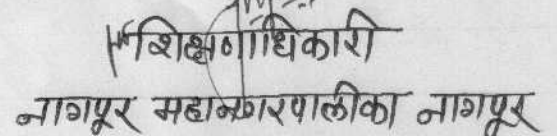 शिक्षणाधिकारी
नागपूर महानगरपालीका नागपूर